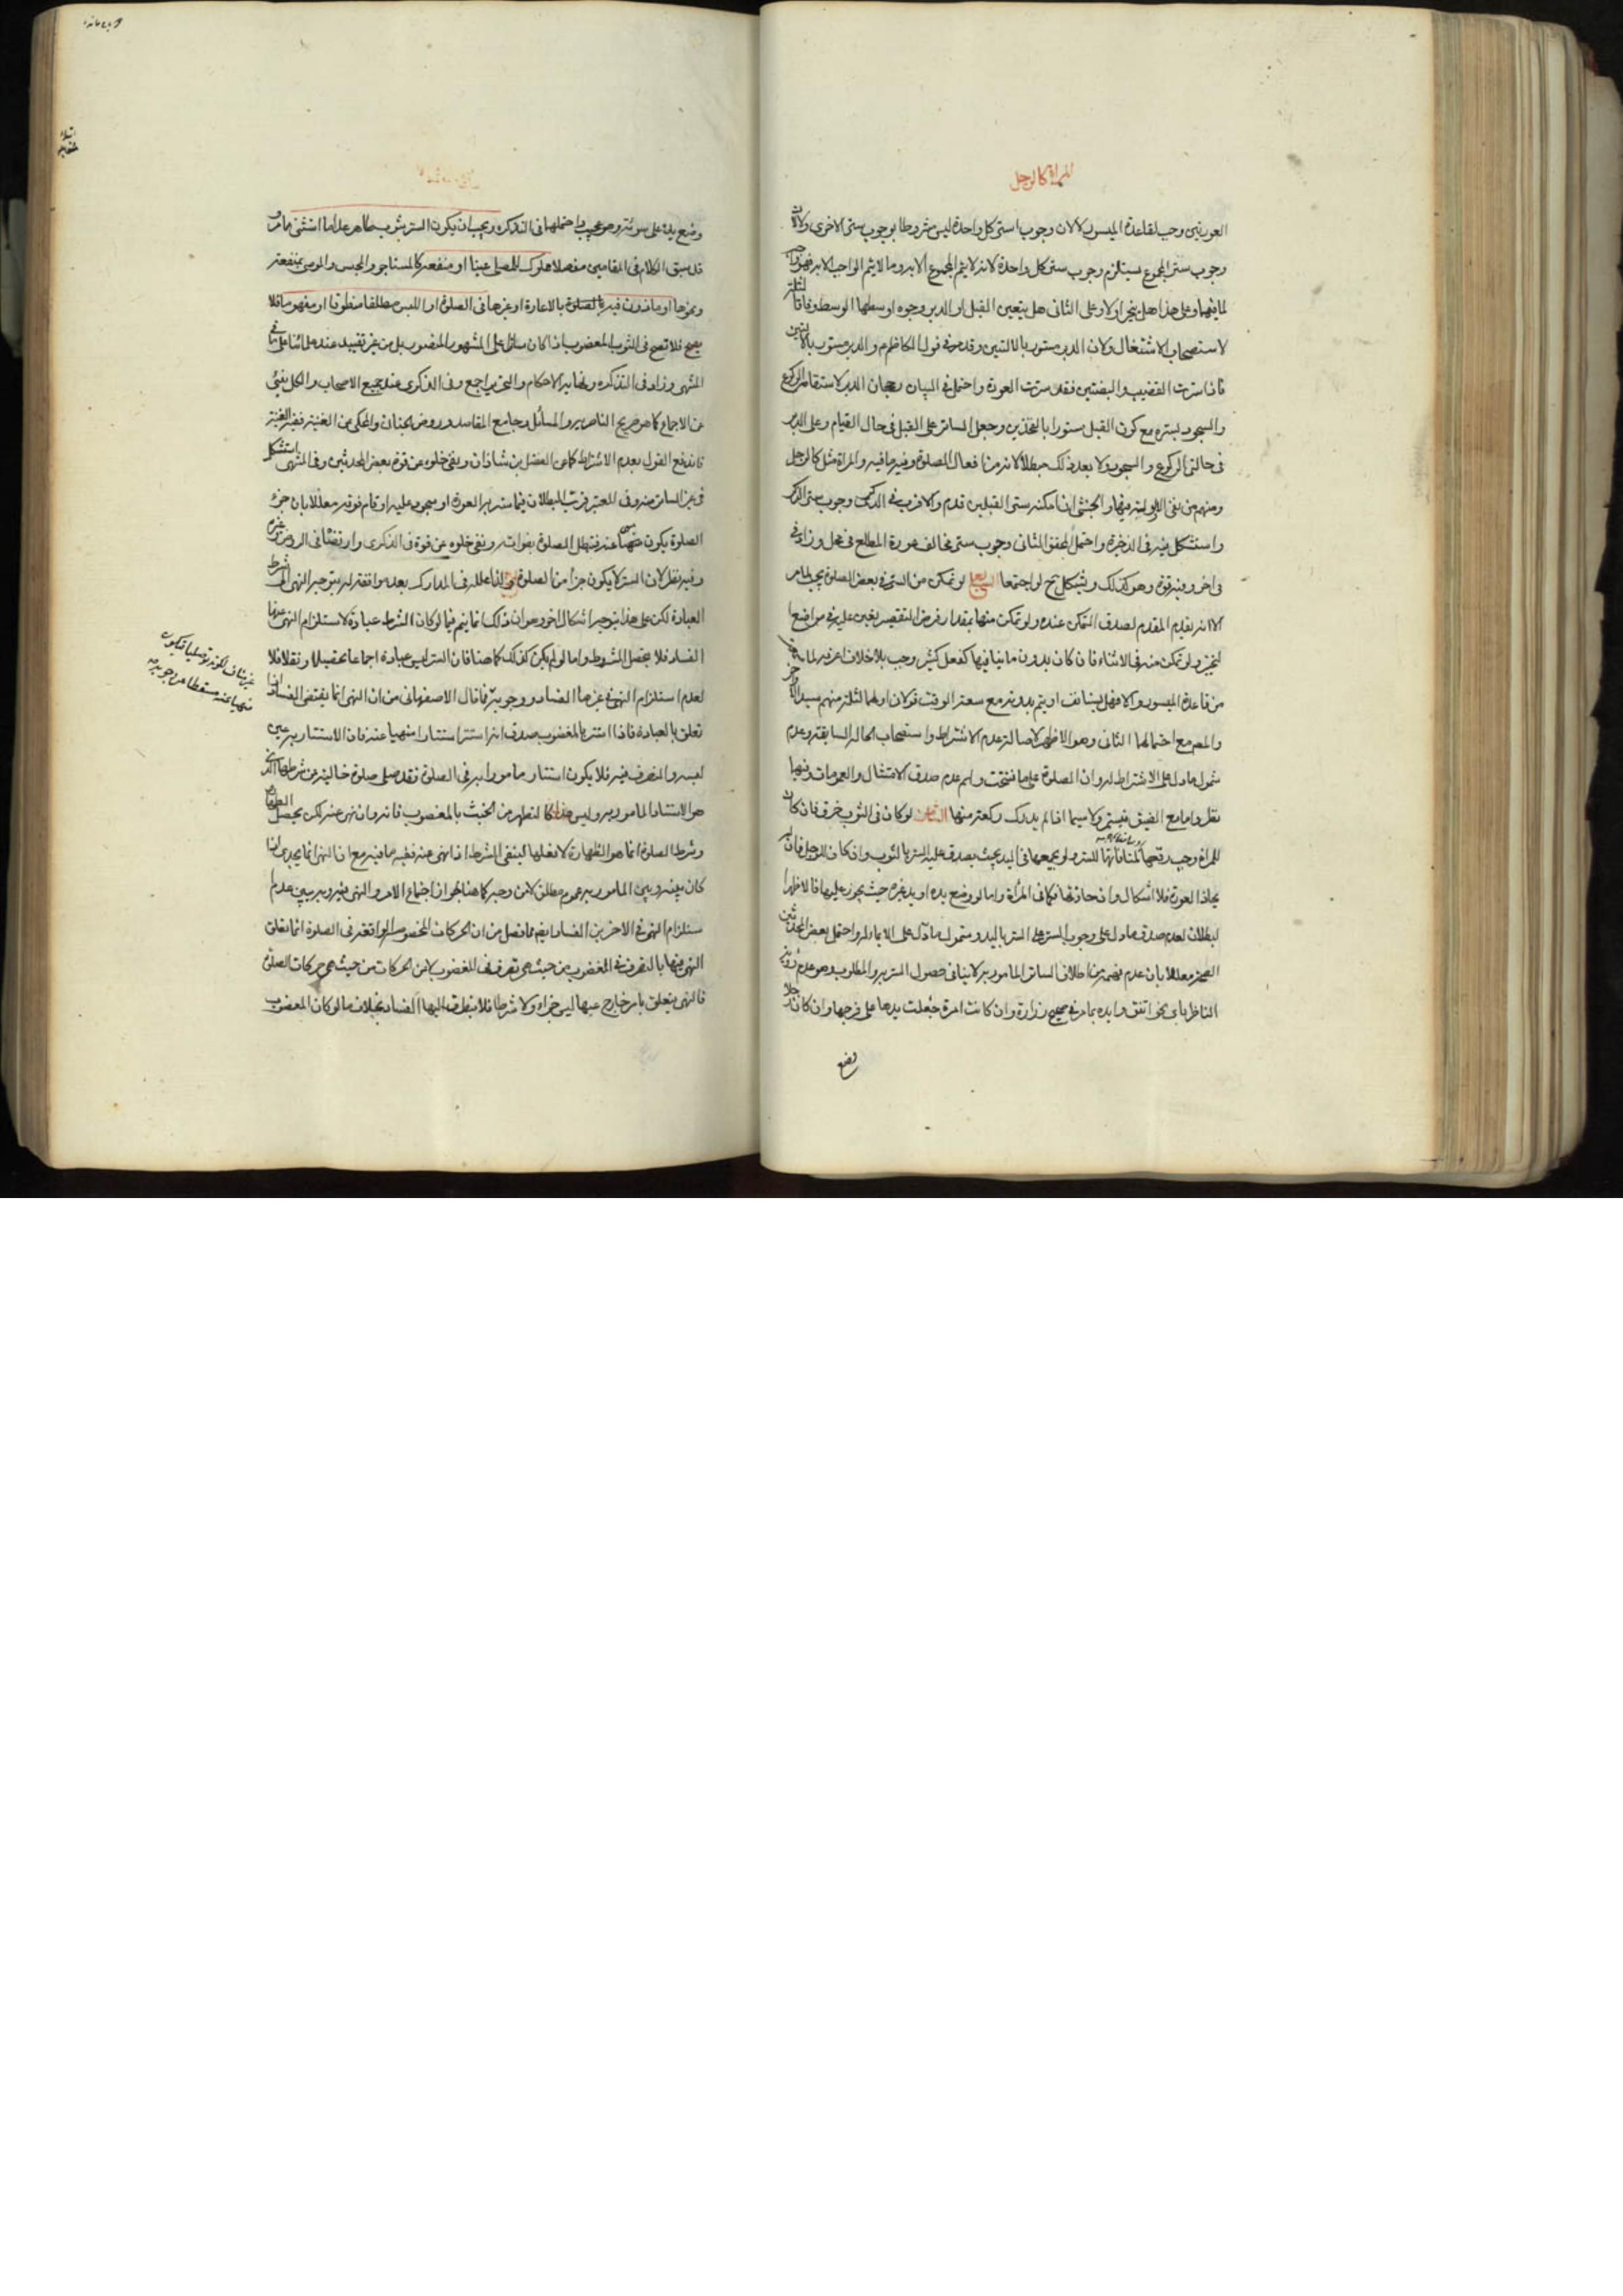 المراة كالرجل
العورتين وجب لقاعدة الميسور ولان وجوب ستر كل واحدة ليس مشروطا بوجوب ستر الاخرى ولان
وجوب ستر المجموع يستلزم وجوب ستر كل واحدة لانه لا يتم المجموع الا به وما لا يتم الواجب الا به فهو واجب
وعلى هذا هل يتخير اولا وعلى الثاني هل يتعين القبل او الدبر وجوه اوسطها الوسط وفاقا
لاستصحاب الاشتغال ولان الدبر مستور بالاليتين وقد مر في قول الكاظم م والدبر مستور بالاليتين
فاذا سترت القضيب والبيضتين فقد سترت العورة واحتمل في البيان رجحان الدبر لاستقامة الركوع
والسجود بستره مع كون القبل مستورا بالفخذين وجعل الساتر على القبل في حال القيام وعلى الدبر
في حالتي الركوع والسجود ولا يعد ذلك مبطلا لانه من افعال الصلوة وفيه ما فيه والمراة مثل كالرجل
ومنهم من نفى الاولوية فيها والخنثى ان امكنه ستر القبلين قدم والاقرب في الذكرى وجوب ستر الذكر
واستشكل فيه في الذخيرة واحتمل المحقق الثاني وجوب ستر مخالف عورة المطلع في محل وزاد في
في اخر وفيه قوة وهو كذلك ويشكل ح لو اجتمعا السابع لو تمكن من الستر في بعض الصلوة يجب لما مر
الا انه يقدم المقدم لصدق التمكن عنده ولو تمكن منها بمقدار فرض التقصير تعين عليه في مواضع
التخيير ولو تمكن منه في الاثناء فان كان بدون ما ينافيها كفعل كثير وجب بلا خلاف اعرفه لما مر
من قاعدة الميسور والا فهل يستانف او يتم بدونه مع سعة الوقت قولان اولهما لثلثة منهم سيد
والمص مع احتمالها الثاني وهو الاظهر لاصالة عدم الاشتراط واستصحاب الحالة السابقة وعدم
شمول ما دل على الاشتراط له وان الصلوة على ما افتتحت ولهم عدم صدق الامتثال والعمومات وفيها
نظر واما مع الضيق فيستمر ولا سيما اذا لم يدرك ركعة منها الثامن لو كان في الثوب خرق فان كان
للمراة وجب رقعها للستر ولو بجمعها في اليد بحيث يصدق عليه الستر بالثوب وان كان للرجل فان لم
يحاذ العورة فلا اشكال وان حاذتها فكما في المراة واما لو وضع يده او يد غيره حيث يجوز عليها فالاظهر
البطلان لعدم صدق ما دل على وجوب الستر على الستر باليد وشمول ما دل على الايماء له واحتمل بعض المحدثين
الصحة معللا بان عدم فهمه من اطلاق الساتر المامور به لا ينافي حصول الستر به والمطلوب وهو عدم رؤية
الناظر باي نحو اتفق وايده بما مر في صحيح زرارة وان كانت امرة جعلت يدها على فرجها وان كان رجلا
وضع
وضع يده على سوئته وهو عجيب واحتملها في التذكرة ويجب ان يكون الستر بثوب طاهر عدا ما استثنى مما مر
قد سبق الكلام في المقامين مفصلا مملوك للمصلي عينا او منفعة كالمستاجر والحبس والموصى بمنفعته
ونحوها او ماذون فيه للصلوة بالاعارة او غيرها في الصلوة او اللبس مطلقا منطوقا او مفهوما فلا
يصح فلا تصح في الثوب المغصوب اذا كان ساترا على المشهور المنصوب بل من غير تقييد عند علمائنا على ما في
المنتهى وزاد في التذكرة ونهاية الاحكام والتحرير اجمع وفي الذكرى عند جميع الاصحاب والكل ينبئ
عن الاجماع كما هو صريح الناصرية والمسائل وجامع المقاصد وروض الجنان والمحكي من الغنية
فاندفع القول بعدم الاشتراط كما عن الفضل بن شاذان ونفى خلوه عن قوة بعض المحدثين وفي المنتهى استشكل
في غير الساتر منه وفي المعتبر قرب البطلان فيما ستر به العورة او سجد عليه او قام فوقه معللا بان جزء
الصلوة يكون منهيا عنه فتبطل الصلوة بفواته ونفى خلوه عن قوة في الذكرى وارتضاه في الروض
وفيه نظر لان الستر لا يكون جزأ من الصلوة ولذا علله في المدارك بعد موافقته له بتوجه النهي الى شرط
العبادة لكن على هذا يتوجه اشكال اخر وهو ان ذلك انما يتم فيما لو كان الشرط عبادة لاستلزام النهي عنها
الفساد فلا يحصل المشروط واما لو لم يكن كذلك كما هنا فان الستر ليس عبادة اجماعا تحصيلا ونقلا فلا
لعدم استلزام النهي في غيرها الفساد ووجوبه فما قال الاصفهاني من ان النهي انما يقتضي الفساد اذا
تعلق بالعبادة فاذا استتر بالمغصوب صدق انه استتر استتارا منهيا عنه فان الاستتار به عين
لبسه والتصرف فيه فلا يكون استتاره مامورا به في الصلوة فقد صلى صلوة خالية عن شرطها الذي
هو الاستتار المامور به وليس هذا كالتطهر من الخبث بالمغصوب فانه وان نهي عنه لكن يحصل الطهارة
وشرط الصلوة انما هو الطهارة لا فعلها لينتفى الشرط اذا نهي عنه ففيه ما فيه مع ان النهي انما يجدي اذا
كان بينه وبين المامور به عموم مطلق لا من وجه كما هنا لجواز اجتماع الامر والنهي فيه وبه يبين عدم
استلزام النهي في الاخرين الفساد ايضا فما فصل من ان الحركات المخصوصة الواقعة في الصلوة انما تعلق
النهي فيها بالتصرف في المغصوب من حيث هو تصرف في المغصوب لا من الحركات من حيث هي حركات الصلوة
فالنهي يتعلق بامر خارج عنها ليس جزاء ولا شرطا فلا يتطرق اليها الفساد بخلاف ما لو كان المغصوب